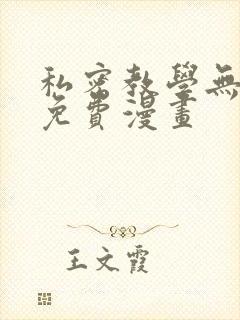 私密教學無
免費漫畫
王文霞